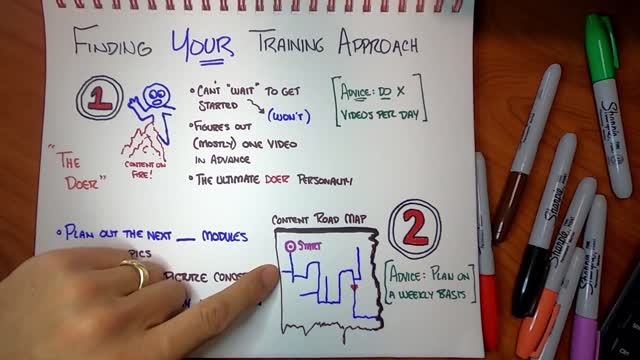 FINDING YOUR TRAINING APPROACH
1
• CAN'T "WAIT" TO GET
STARTED
(WON'T)
• FIGURES OUT
(MOSTLY) ONE VIDEO
IN ADVANCE
• THE ULTIMATE DOER PERSONALITY
[ADVICE: DO X
VIDEOS PER DAY]
CONTENT ON
FIRE!
"THE
DOER"
• PLAN OUT THE NEXT __ MODULES
PICS
PICTURE
CONTENT ROAD MAP
START
2
[ADVICE: PLAN ON
A WEEKLY BASIS]
Sharpie
Sharpie
Sharpie
Sharpie